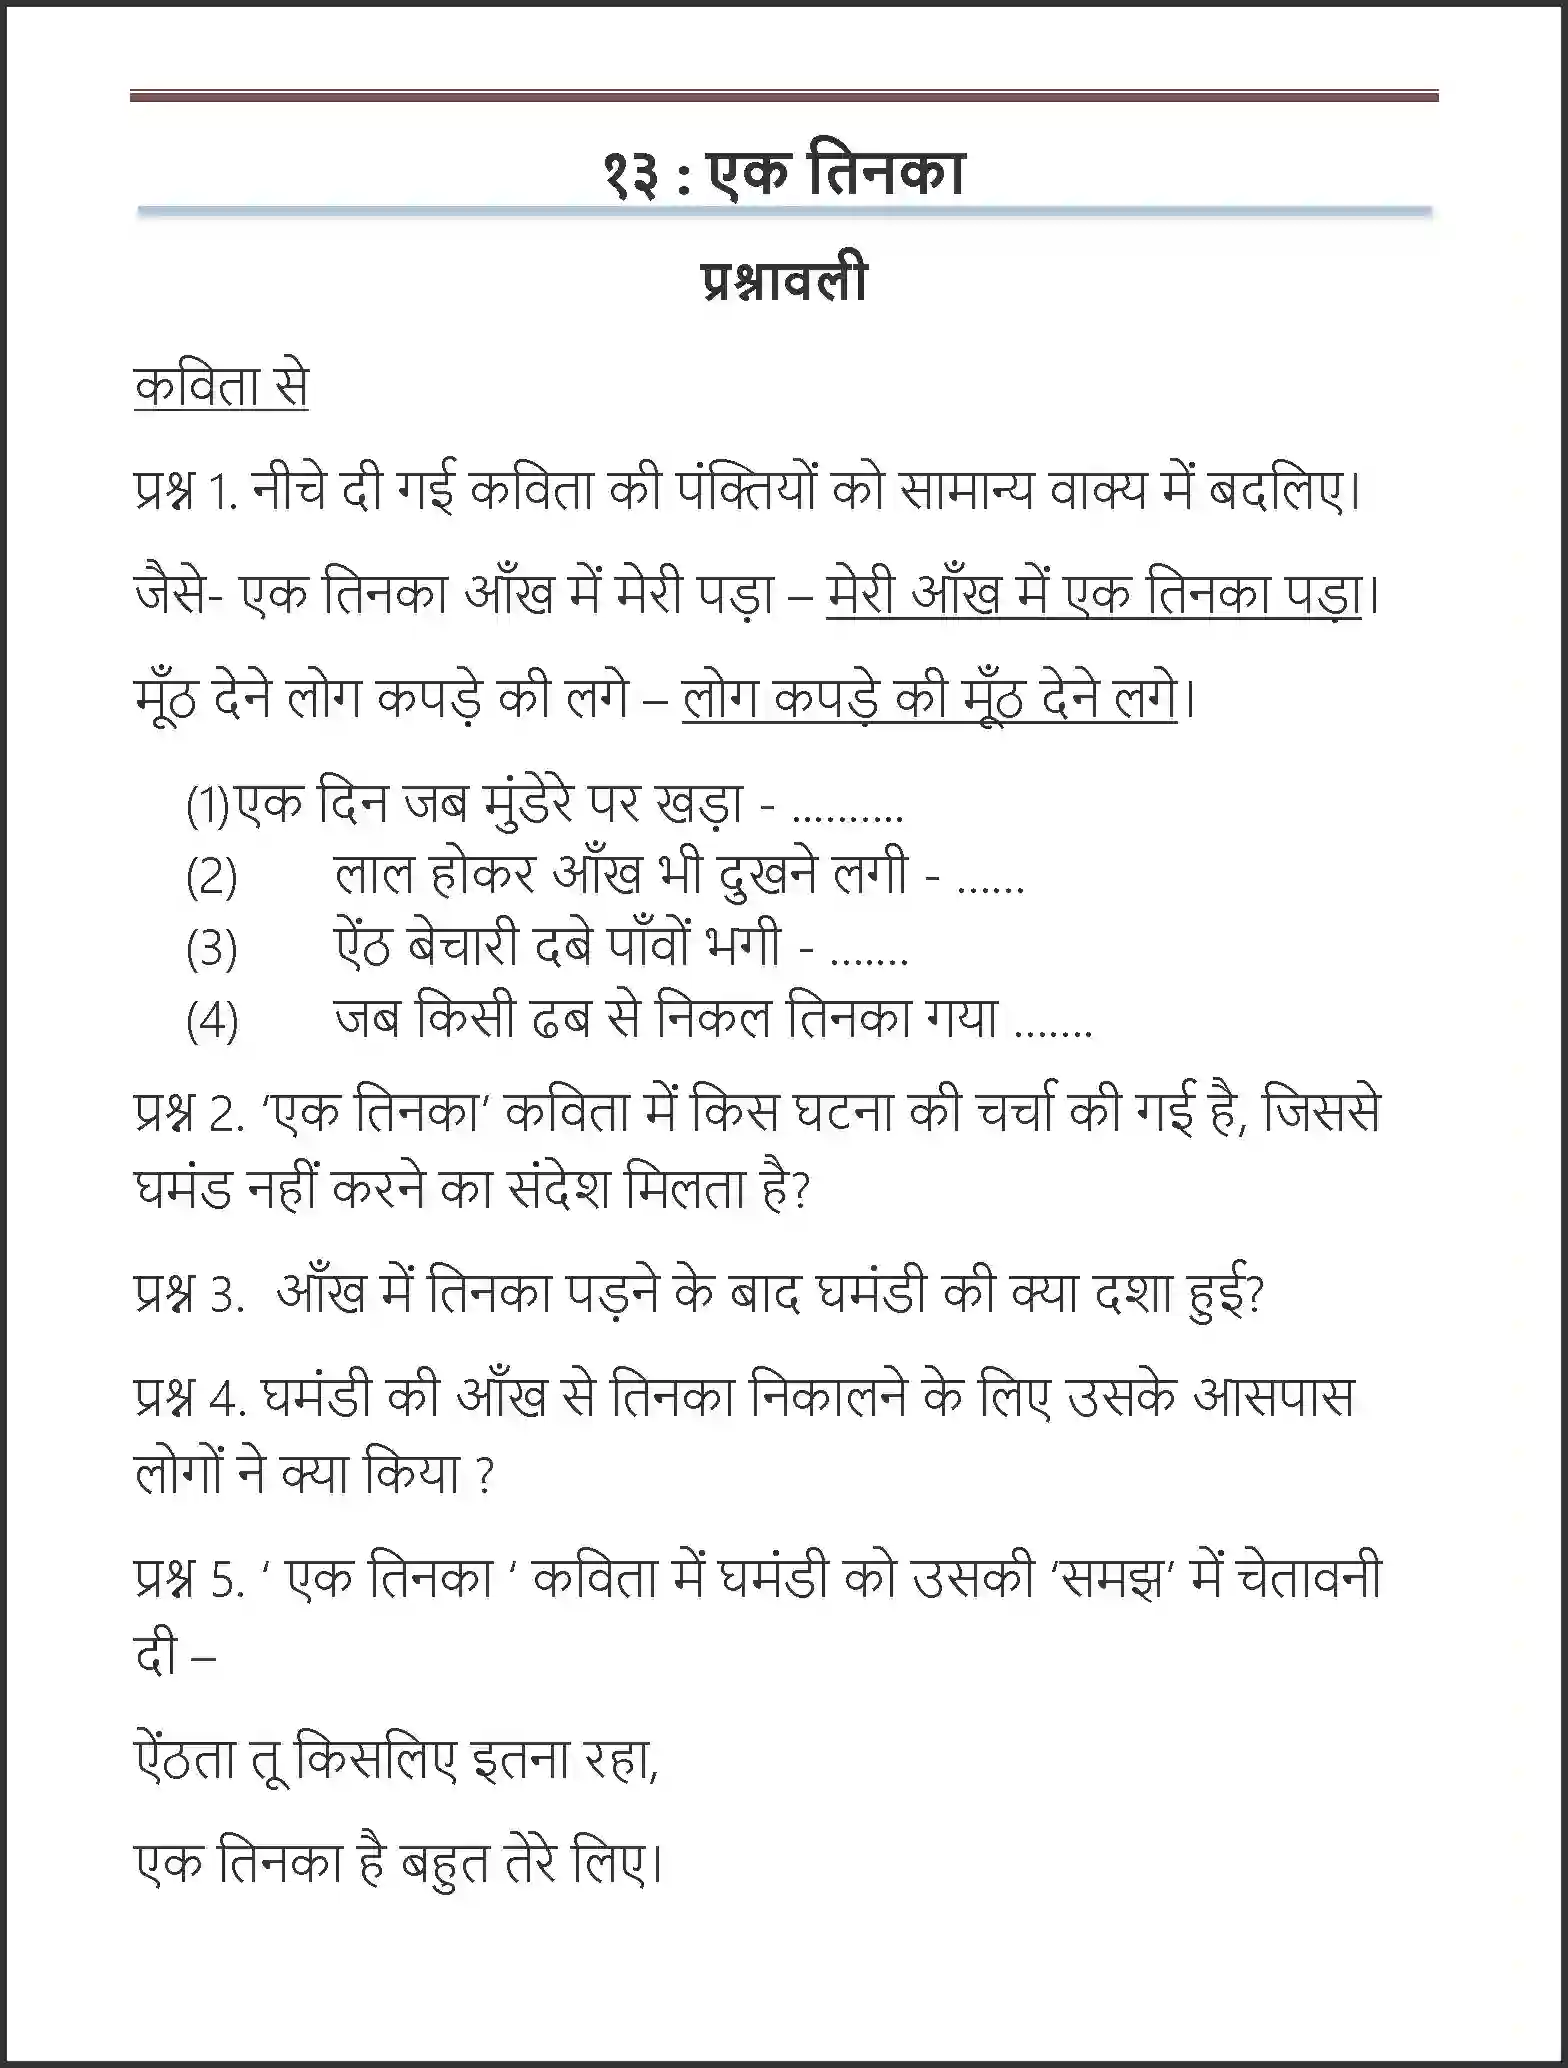 १३ : एक तिनका
प्रश्नावली
कविता से
प्रश्न 1. नीचे दी गई कविता की पंक्तियों को सामान्य वाक्य में बदलिए।
जैसे- एक तिनका आँख में मेरी पड़ा – मेरी आँख में एक तिनका पड़ा।
मूँठ देने लोग कपड़े की लगे – लोग कपड़े की मूँठ देने लगे।
(1)एक दिन जब मुंडेरे पर खड़ा - ..........
(2) लाल होकर आँख भी दुखने लगी - ......
(3) ऐंठ बेचारी दबे पाँवों भगी - .......
(4) जब किसी ढब से निकल तिनका गया .......
प्रश्न 2. ‘एक तिनका’ कविता में किस घटना की चर्चा की गई है, जिससे
घमंड नहीं करने का संदेश मिलता है?
प्रश्न 3. आँख में तिनका पड़ने के बाद घमंडी की क्या दशा हुई?
प्रश्न 4. घमंडी की आँख से तिनका निकालने के लिए उसके आसपास
लोगों ने क्या किया ?
प्रश्न 5. ‘ एक तिनका ‘ कविता में घमंडी को उसकी ‘समझ’ में चेतावनी
दी –
ऐंठता तू किसलिए इतना रहा,
एक तिनका है बहुत तेरे लिए।